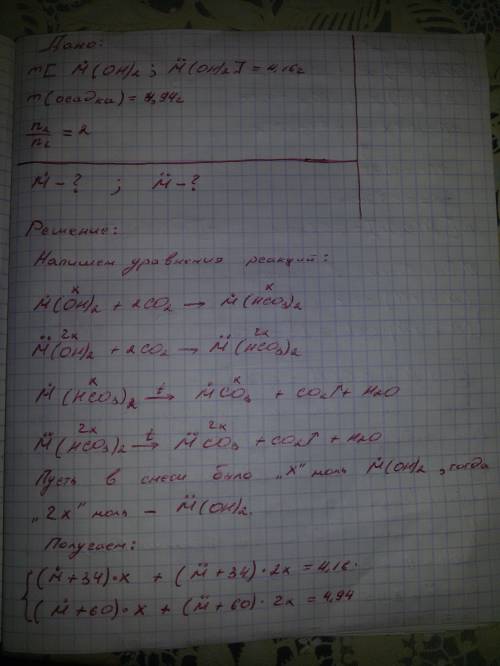 Дано:
m[ Ṁ(OH)₂ ; M̈(OH)₂] = 4,16г
m(осадка) = 4,94г
n₂/n₁ = 2
Ṁ - ? ; M̈ - ?
Решение:
Напишем уравнения реакций:
x x
Ṁ(OH)₂ + 2CO₂ → Ṁ(HCO₃)₂
2x 2x
M̈(OH)₂ + 2CO₂ → M̈(HCO₃)₂
x t x
Ṁ(HCO₃)₂ → ṀCO₃ + CO₂↑ + H₂O
2x t 2x
M̈(HCO₃)₂ → M̈CO₃ + CO₂↑ + H₂O
Пусть в смеси было „x" моль Ṁ(OH)₂, тогда
„2x" моль – M̈(OH)₂.
Получаем:
{(Ṁ+34)·x + (M̈+34)·2x = 4,16.
(Ṁ+60)·x + (M̈+60)·2x = 4,94